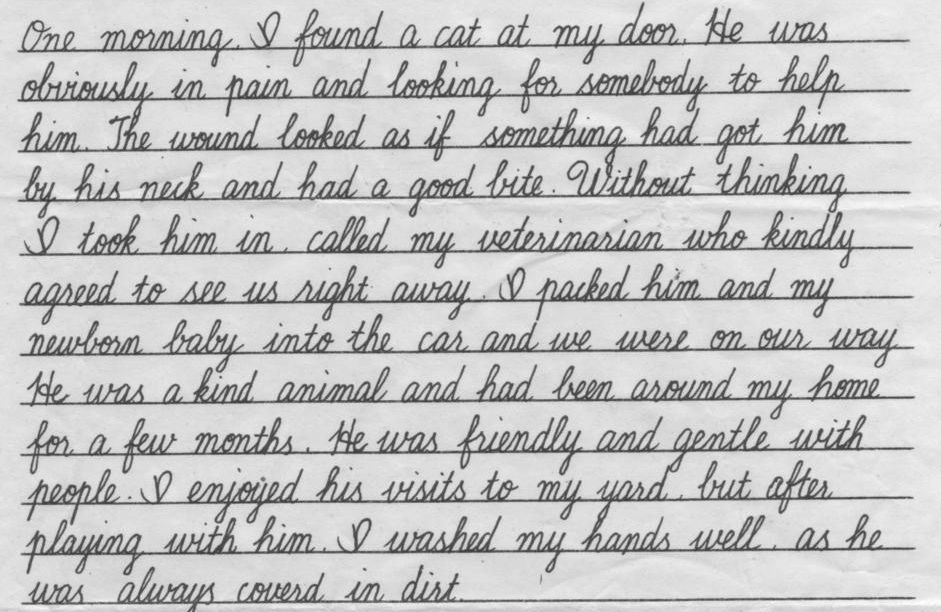 One morning, I found a cat at my door. He was
obviously in pain and looking for somebody to help
him. The wound looked as if something had got him
by his neck and had a good bite. Without thinking
I took him in, called my veterinarian who kindly
agreed to see us right away. I packed him and my
newborn baby into the car and we were on our way
He was a kind animal and had been around my home
for a few months. He was friendly and gentle with
people. I enjoyed his visits to my yard, but after
playing with him, I washed my hands well, as he
was always coverd in dirt.